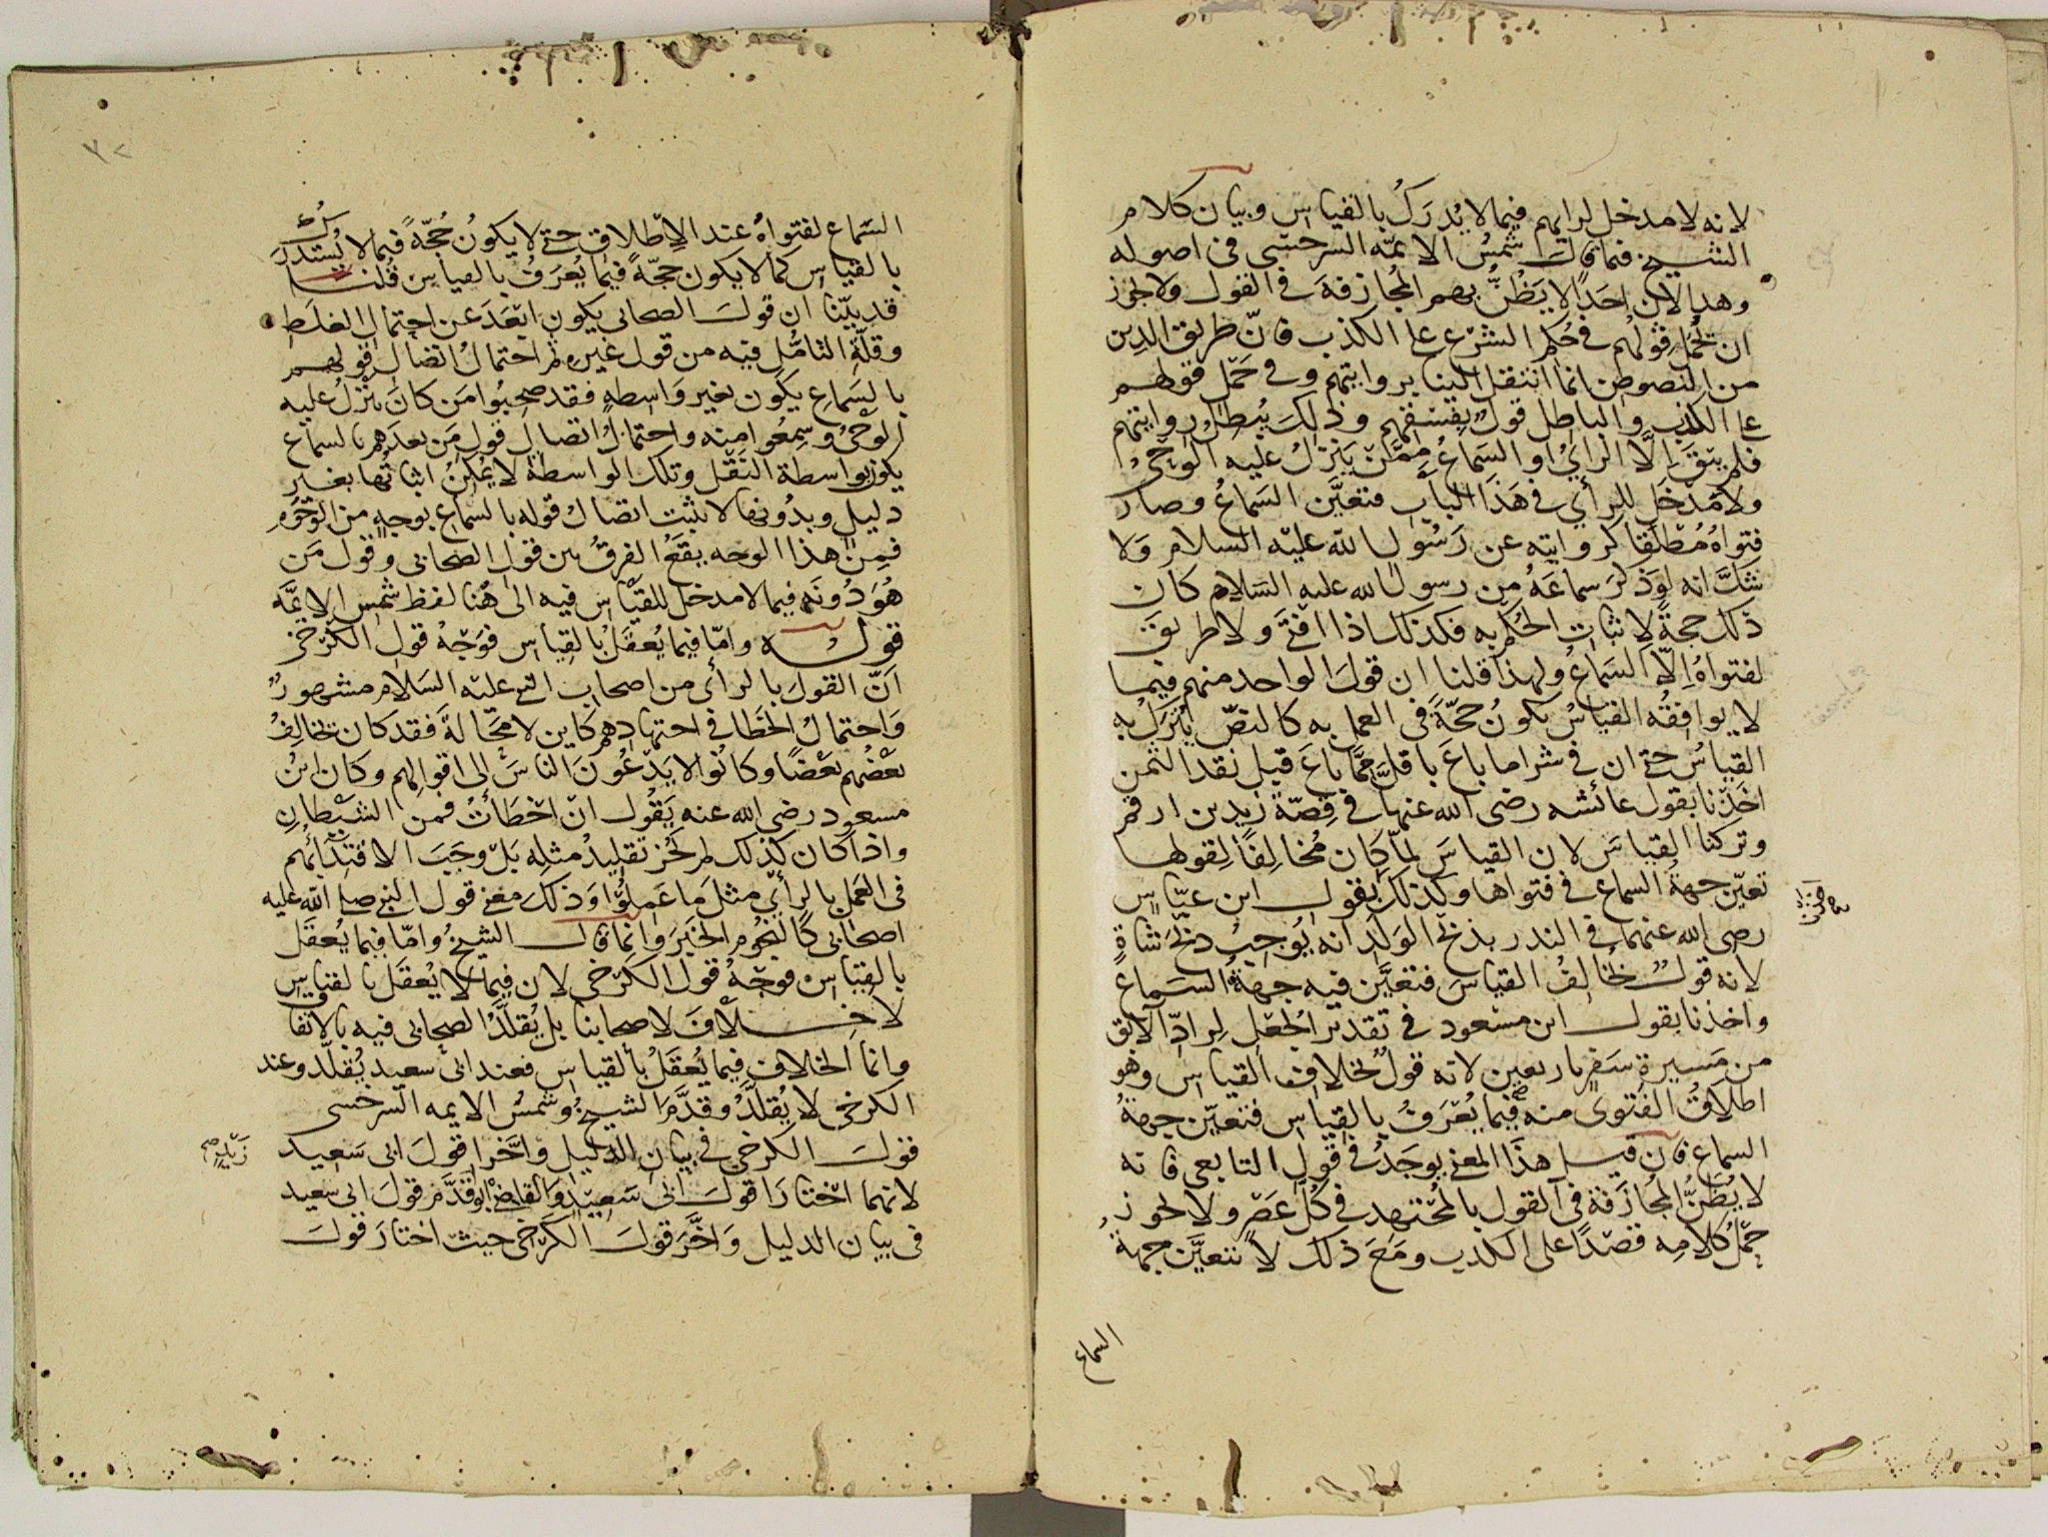 لانه لا مدخل لرايهم فيما لا يُدرَكُ بالقياس وبيان كلام
الشيخ فيما قال شمسُ الائمّه السرخسى فى اصوله
وهدا لان احَدًا لا يَظُنُّ بهم المُجازفةَ فى القول ولا يجوز
ان يُحْمَل قولُهم فى حُكم الشرْع على الكذب فانّ طريق الدين
من النصوص انما انتقل الينا بروايتهم وفى حَمْل قولهم
على الكذب والباطل قولٌ بفسقهم وذلكَ يُبطلُ روايتهم
فلم يبْقَ الَّا الرايُ او السَماعُ ممَّنْ يَنزلُ عليه الوحْىُ
ولا مَدْخَل للرأي فى هَذا الباب فتعيَّن السَماعُ وصار
فتواهُ مُطلقا كروايته عن رَسُول الله عليه السلام وَلا
شكَّ انه لوَ ذكرَ سماعَهُ من رسول الله عليه السلام كان
ذلك حجةً لاثبات الحُكم به فكذلك اذا افتى ولا طريق
لفتواهُ اِلاّ السَماعُ ولهذا قلنا ان قولَ الواحد منهم فيما
لا يوافقُه القياسُ يكونُ حجّةً فى العمل به كالنصّ يُتْرَكُ به
القياسُ حتى ان فى شرا ما باعَ باقلَّ ممَّا باعَ قبل نقد الثمن
اخَذْنا بقول عائشه رضى الله عنها فى قِصّة زيد بن ارقم
وتركنا القياسَ لان القياسَ لمّا كان مُخالِفًا لِقولها
تعيّن جهةُ السماع فى فتواها وكذلك بقول ابن عبّاس
رضى الله عنهما فى النذر بذبح الوَلَد انه يُوجبُ ذبْحَ شاةٍ
لانه قولٌ يُخالِفُ القياسَ فتعيَّن فيه جهةُ السَماع
واخذنا بقول ابن مسْعود فى تقدير الجُعْل لِرادّ الآبق
من مَسيرة سَفرٍ باربعين لانه قولٌ بخلاف القياس وهُو
اطلاقُ الفَتوى منه فيما يُعْرَفُ بالقياس فتعيّن جهةُ
السماع فان قيل هذَا المعنى يوجَدُ فى قول التابعى فانه
لا يُظَنُّ المُجازَفة فى القول بالمُجْتهد فى كُلّ عَصْر ولا يجوز
حَمْلُ كلامِه قصْدًا على الكذب ومَعَ ذلك لا تتعيَّن جهةُ
السماع
السَماع لفتواهُ عند الاِطلاق حتى لا يكونُ حُجّةً فيما لا يُسْتدرَكُ
بالقياس كما لا يكون حجّةً فيما يُعرَفُ بالقياس قُلنا
قد بيّنا ان قولَ الصحابى يكون ابْعَدَ عن احتمال الغلَط
وقلّةِ التامُّلِ فيه من قول غيره ثم احتمالُ اتصال قولهم
بالسَماع يكون بغير وَاسطهٍ فقد صحبُوا مَن كانَ يَنْزلُ عليه
الوحْىُ وسمعُوا منه واحتمالُ اتصال قولِ مَن بعدَهم بالسماع
يكون بواسطة النَقْل وتلك الواسطة لا يُمْكِنُ اثباتُها بغير
دليل وبدُونها لا يثبت اتصال قوله بالسماع بوجهٍ من الوجُوه
فمِنْ هذا الوجه يقعُ الفرقُ بين قول الصحابى وقول مَن
هُوَ دُونَه فيما لا مدخل للقيَاس فيه الى هُنا لفظ شمس الائمَّه
قولُه وامّا فيما يُعقَلُ بالقِياس فوَجْهُ قول الكَرْخى
اَنّ القولَ بالرأى من اصحاب النبى عليه السَلام مشهورٌ
وَاحتمالُ الخَطا فى اجتهادهم كاين لا محَالةَ فقد كان يُخالِفُ
بعْضُهم بعْضًا وكانُوا لا يَدْعُونَ الناسَ الى اقوالِهم وكان ابنُ
مسعود رضى الله عنه يَقُول انْ اخطَأتُ فمن الشيْطان
واذا كان كذلك لم يَجُز تقليدُ مثلِه بَلْ وجَبَ الاقتِدَاءُ بهم
فى العَمل بالرأي مثلَ مَا عَمِلُوا وَذلكَ معنى قول النبى صلى الله عليه
اصحابى كالنجُوم الخبَرَ وَانما قال الشيخُ وامّا فيما يُعقَل
بالقياس فوجْهُ قول الكَرْخى لان فيما لا يُعقَل بالقياس
لا خِلافَ لاصحابنا بل يُقلَّدُ الصحابى فيه بالاتفاق
وانما الخلافُ فيما يُعقَلُ بالقياس فعند ابى سعيد يُقلَّد وعند
الكرخى لا يُقلَّدُ وقدَّمَ الشيخُ وشمسُ الايمه السرخسى
قولَ الكرخى فى بيان الدليل وَاخَّرا قولَ ابى سَعيد
لانهما اختارَا قولَ ابى سَعيد وَالقاضى ابو زيد قدَّم قولَ ابى سعيد
فى بيان الدليل وَاخَّرَ قولَ الكَرْخى حيث اختارَ قولَ